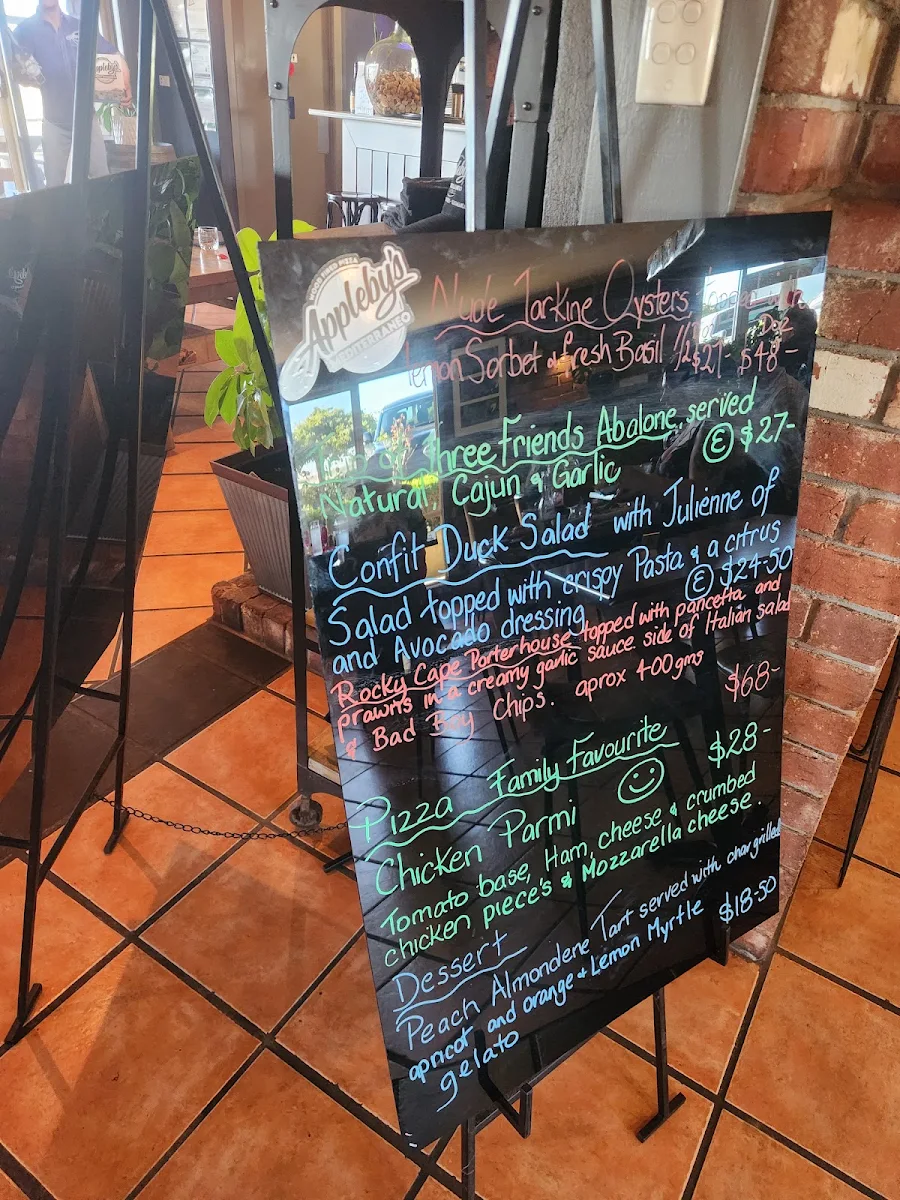 WOOD FIRED PIZZA
Appleby's
MEDITERRANEO
Nude Tarkine Oysters
Lemon Sorbet & fresh Basil 1/2 $27 Doz $48-
Three Friends Abalone served
Natural, Cajun & Garlic Ⓔ $27-
Confit Duck Salad with Julienne of
Salad topped with crispy Pasta & a citrus
and Avocado dressing Ⓔ $24-50
Rocky Cape Porterhouse topped with pancetta and
prawns in a creamy garlic sauce. side of Italian salad
& Bad Boy Chips. aprox 400gms $68-
Pizza Family Favourite $28-
Chicken Parmi
Tomato base, Ham, cheese & crumbed
chicken piece's & Mozzarella cheese.
Dessert
Peach Almondene Tart served with chargrilled
apricot and orange & Lemon Myrtle $18-50
gelato